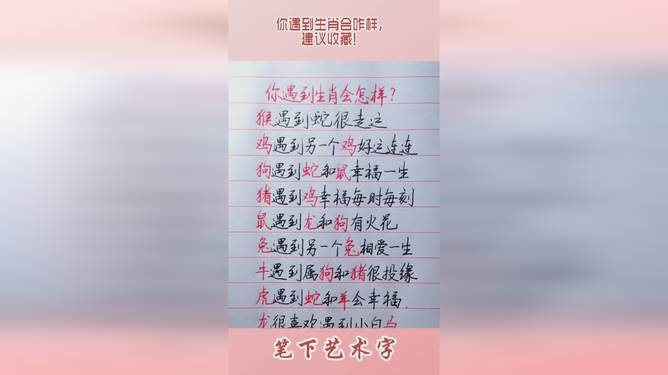 你遇到生肖会咋样,
建议收藏!
你遇到生肖会怎样?
猴遇到蛇很走运
鸡遇到另一个鸡好运连连
狗遇到蛇和鼠幸福一生
猪遇到鸡幸福每时每刻
鼠遇到龙和狗有火花
兔遇到另一个兔相爱一生
牛遇到属狗和猪很投缘
虎遇到蛇和羊会幸福.
龙很喜欢遇到小白马
笔下艺术字